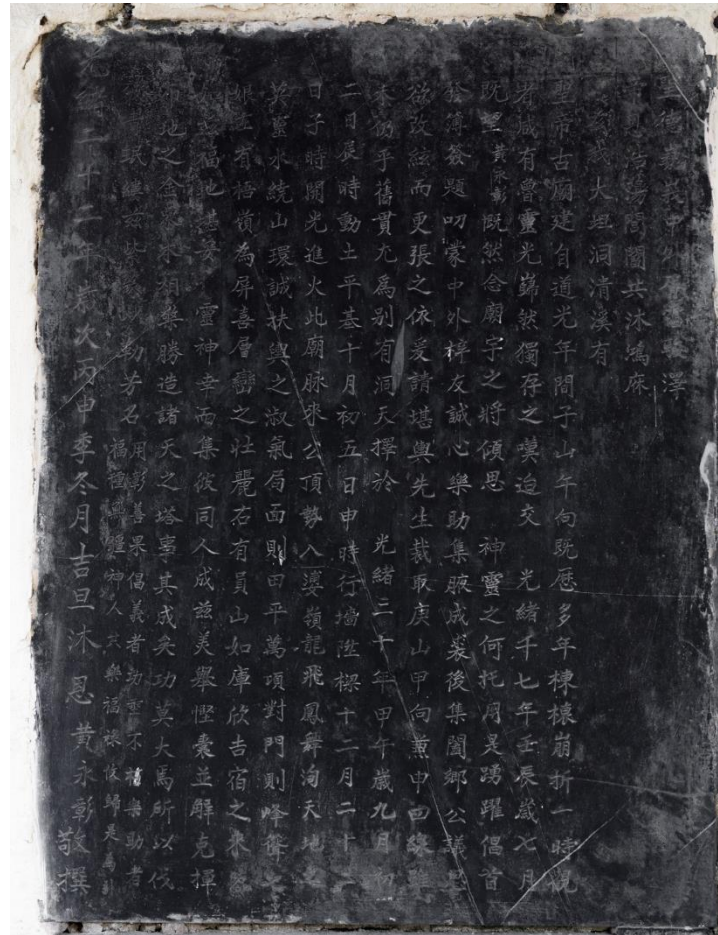 聖德
浩蕩閭閻共沐鴻庥
大坦洞清溪有
聖帝古廟建自道光年間子山午向既歷多年棟榱崩折一時況
者咸有魯靈光巋然獨存之嘆迨交 光緒十七年壬辰歲七月
既望黃永彰慨然念廟宇之將傾思 神靈之何托用是踴躍倡首
簿簽題叨蒙中外梓友誠心樂助集腋成裘後集闔鄉公議思
欲改絃而更張之依爰請堪輿先生裁取庚山甲向兼申四線雖
未仍乎舊貫尤為別有洞天擇於 光緒二十年甲午歲九月初
二日辰時動土平基十月初五日申時行墻陞樑十二月二十
日子時開光進火此廟脉來公頂勢入婆嶺龍飛鳳舞洵天地之
英靈水繞山環誠扶輿之淑氣局面則田平萬項對門則峰聳
左有梧嶺為屏喜層巒之壯麗右有員山如庫欣吉宿之來
福地甚安 靈神幸而集彼同人成茲美舉慳囊並解克揮
布地之金 樂勝造諸天之塔事其成矣功莫大焉所以伐
勒芳名用彰善果倡義者功 不 樂助者
福種無疆神人共樂福祿攸歸是為引
光緒二十二年歲次丙申季冬月吉旦沐恩黃永彰敬撰